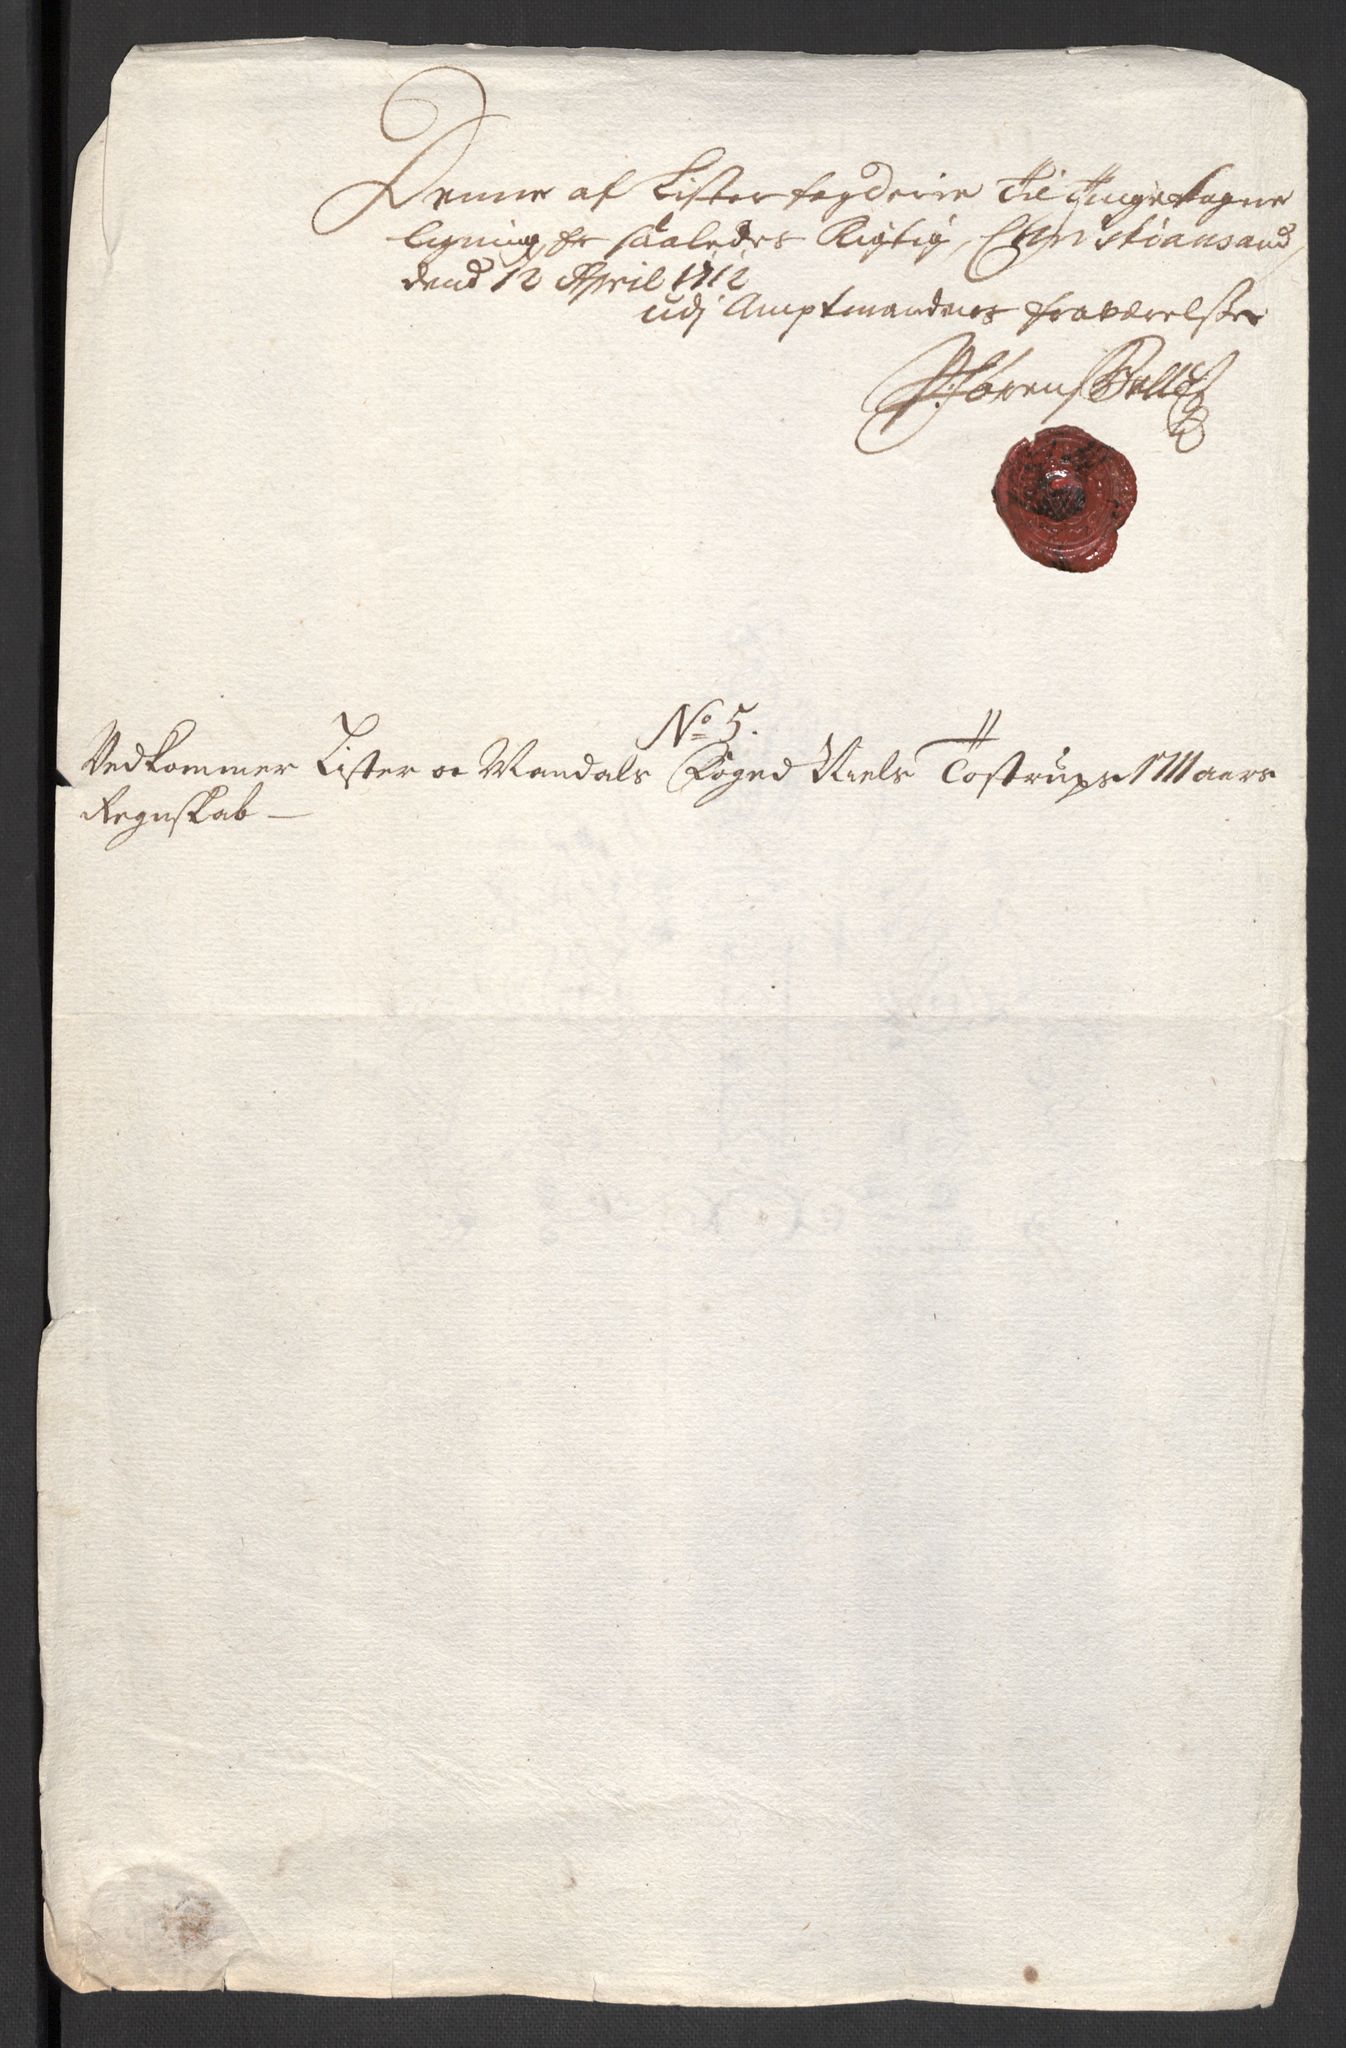 Denne af Lister fogderie Til Tinge tagne
ligning, er saaledes Rigtig, Christiansand,
dend 12 April 1712
udj Amptmandens fraværelsse
Sørens
No 5.
Vedkommer Lister oc Mandals Foged Niels Tostrups 1711 aars
Regnskab